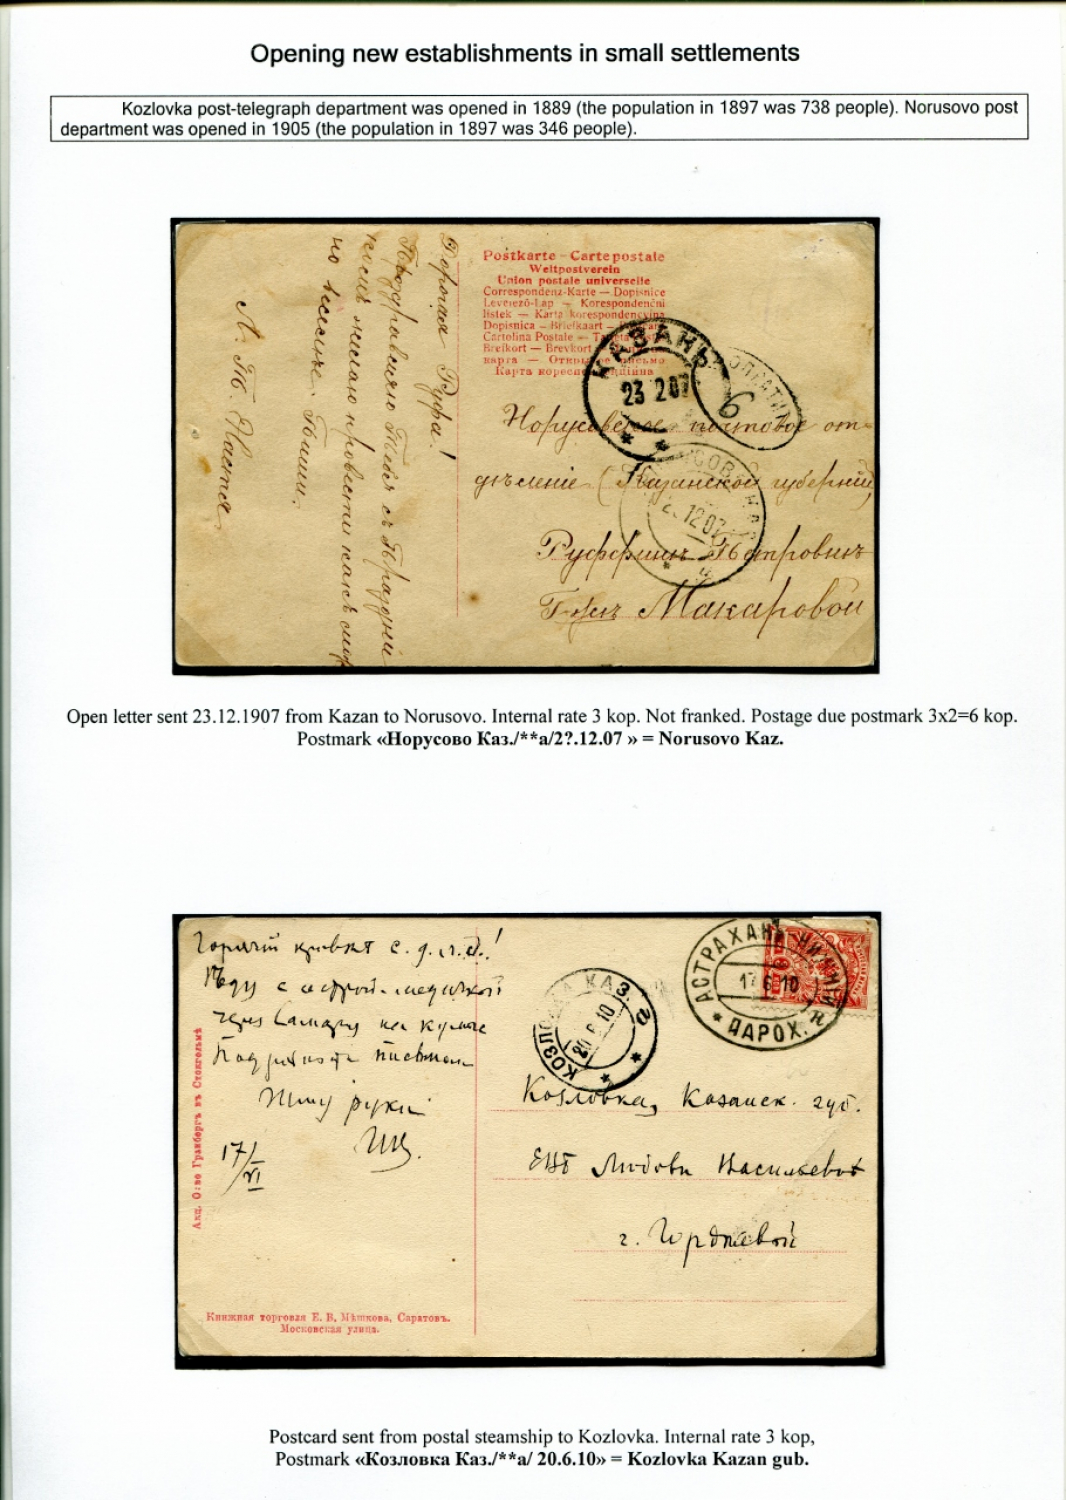 Opening new establishments in small settlements
Kozlovka post-telegraph department was opened in 1889 (the population in 1897 was 738 people). Norusovo post
department was opened in 1905 (the population in 1897 was 346 people).
Дорогая Руфа!
Поздравляю Тебя съ Праздни
комъ желаю провести какъ мож
но веселѣе. Пиши.
Л. Т. Настя
Postkarte - Carte postale
Weltpostverein
Union postale universelle
Correspondenz-Karte — Dopisnice
Levelező-Lap — Korespondenční
listek — Karta korespondencyjna
Dopisnica — Briefkaart —
Cartolina Postale —
Brefkort — Brevkort
карта — Открытое письмо
Карта
КАЗАНЬ
23 12 07
ДОПЛАТИТЬ
6
Норусовское почтовое от-
дѣленіе (Казанской губерніи)
12 07
Руффинѣ Петровнѣ
Г-жѣ Макаровой
Open letter sent 23.12.1907 from Kazan to Norusovo. Internal rate 3 kop. Not franked. Postage due postmark 3x2=6 kop.
Postmark «Норусово Каз./**а/2?.12.07 » = Norusovo Kaz.
Горячій привѣт с. д. !
Ѣду с
через Самару на
Подробности письмом
Жму руки
17/VI
Акц. О-во Гранбергъ въ Стокгольмѣ
Книжная торговля Е. В. Мѣшкова, Саратовъ.
Московская улица.
КОЗЛОВКА КАЗ. а
20 6 10
АСТРАХАНЬ НИЖНІЙ
17 6 10
ПАРОХ.
Козловка, Казанск. губ.
ЕВБ Любови Васильевнѣ
г. Гордѣевой
Postcard sent from postal steamship to Kozlovka. Internal rate 3 kop,
Postmark «Козловка Каз./**а/ 20.6.10» = Kozlovka Kazan gub.